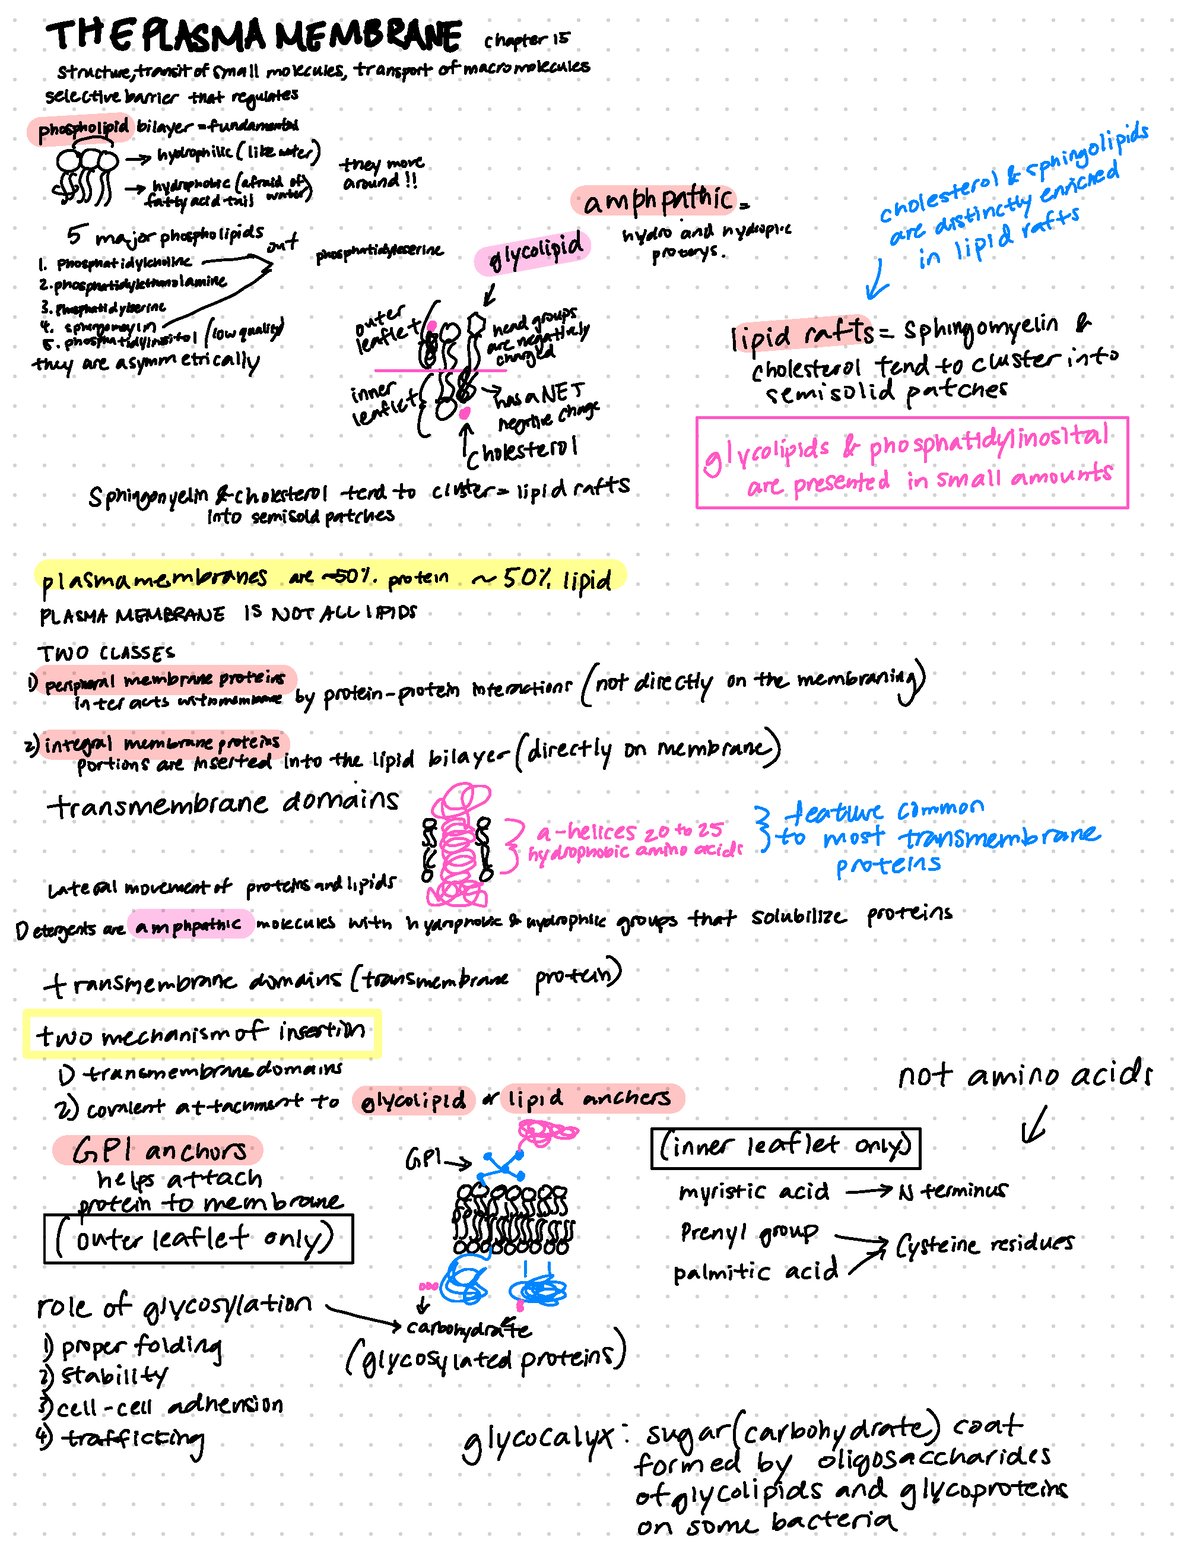 THE PLASMA MEMBRANE chapter 15
structure, transit of small molecules, transport of macromolecules
selective barrier that regulates
phospholipid bilayer = fundamental
→ hydrophilic (like water)
→ hydrophobic (afraid of water)
fatty acid tail
they move
around!!
5 major phospholipids
1. Phosphatidylcholine
2. phosphatidylethanolamine
3. Phosphatidylserine
4. sphingomyelin
5. phosphatidylinsitol (low quality)
out
they are asymmetrically
phosphatidylserine
glycolipid
outer
leaflet
head groups
are negatively
charged
inner
leaflet
has a NET
negative charge
cholesterol
amphpathic =
hydro and
cholesterol & sphingolipids
are distinctly enriched
in lipid rafts
lipid rafts = sphingomyelin &
cholesterol tend to cluster into
semisolid patches
glycolipids & phosphatidylinosital
are presented in small amounts
Sphingomyelin & cholesterol tend to cluster = lipid rafts
into semisold patches
plasma membranes are ~50% protein ~ 50% lipid
PLASMA MEMBRANE IS NOT ALL LIPIDS
TWO CLASSES
1) peripheral membrane proteins
interacts with membrane by protein-protein interactions (not directly on the membraning)
2) integral membrane proteins
portions are inserted into the lipid bilayer (directly on membrane)
transmembrane domains
a-helices 20 to 25
hydrophobic amino acids
feature common
to most transmembrane
proteins
Lateral movement of proteins and lipids
Detergents are amphpathic molecules with hydrophobic & hydrophilic groups that solubilize proteins
transmembrane domains (transmembrane protein)
two mechanism of insertion
1) transmembrane domains
2) covalent attachment to glycolipid or lipid anchers
GPI anchors
helps attach
protein to membrane
(outer leaflet only)
GPI →
not amino acids
(inner leaflet only)
myristic acid → N terminus
Prenyl group
palmitic acid
Cysteine residues
role of glycosylation
1) proper folding
2) stability
3) cell-cell adhension
4) trafficking
carbohydrate
(glycosylated proteins)
glycocalyx: sugar (carbohydrate) coat
formed by oligosaccharides
of glycolipids and glycoproteins
on some bacteria